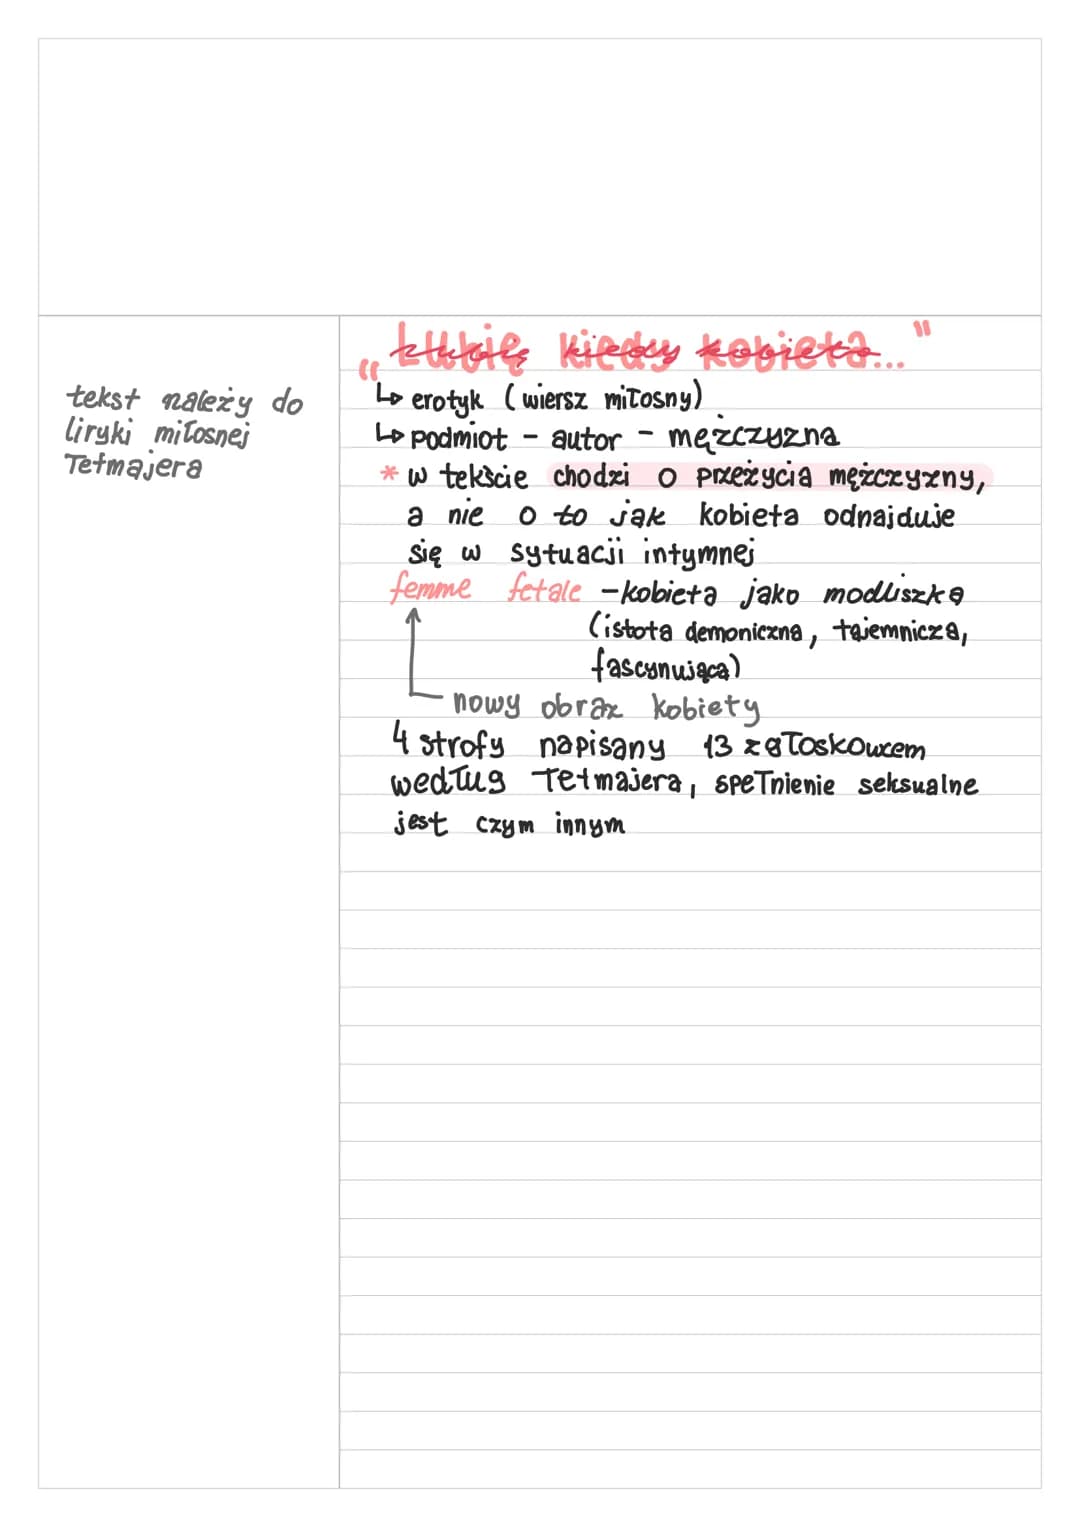 „Lubię kiedy kobieta..."
tekst należy do
liryki miłosnej
Tetmajera
↳ erotyk (wiersz miłosny)
↳ podmiot - autor - mężczyzna
* w tekście chodzi o przeżycia mężczyzny,
a nie o to jak kobieta odnajduje
się w sytuacji intymnej
femme fetale - kobieta jako modliszka
(istota demoniczna, tajemnicza,
fascynująca)
nowy obraz kobiety
4 strofy napisany 13 zgłoskowcem
według Tetmajera, spełnienie seksualne
jest czym innym